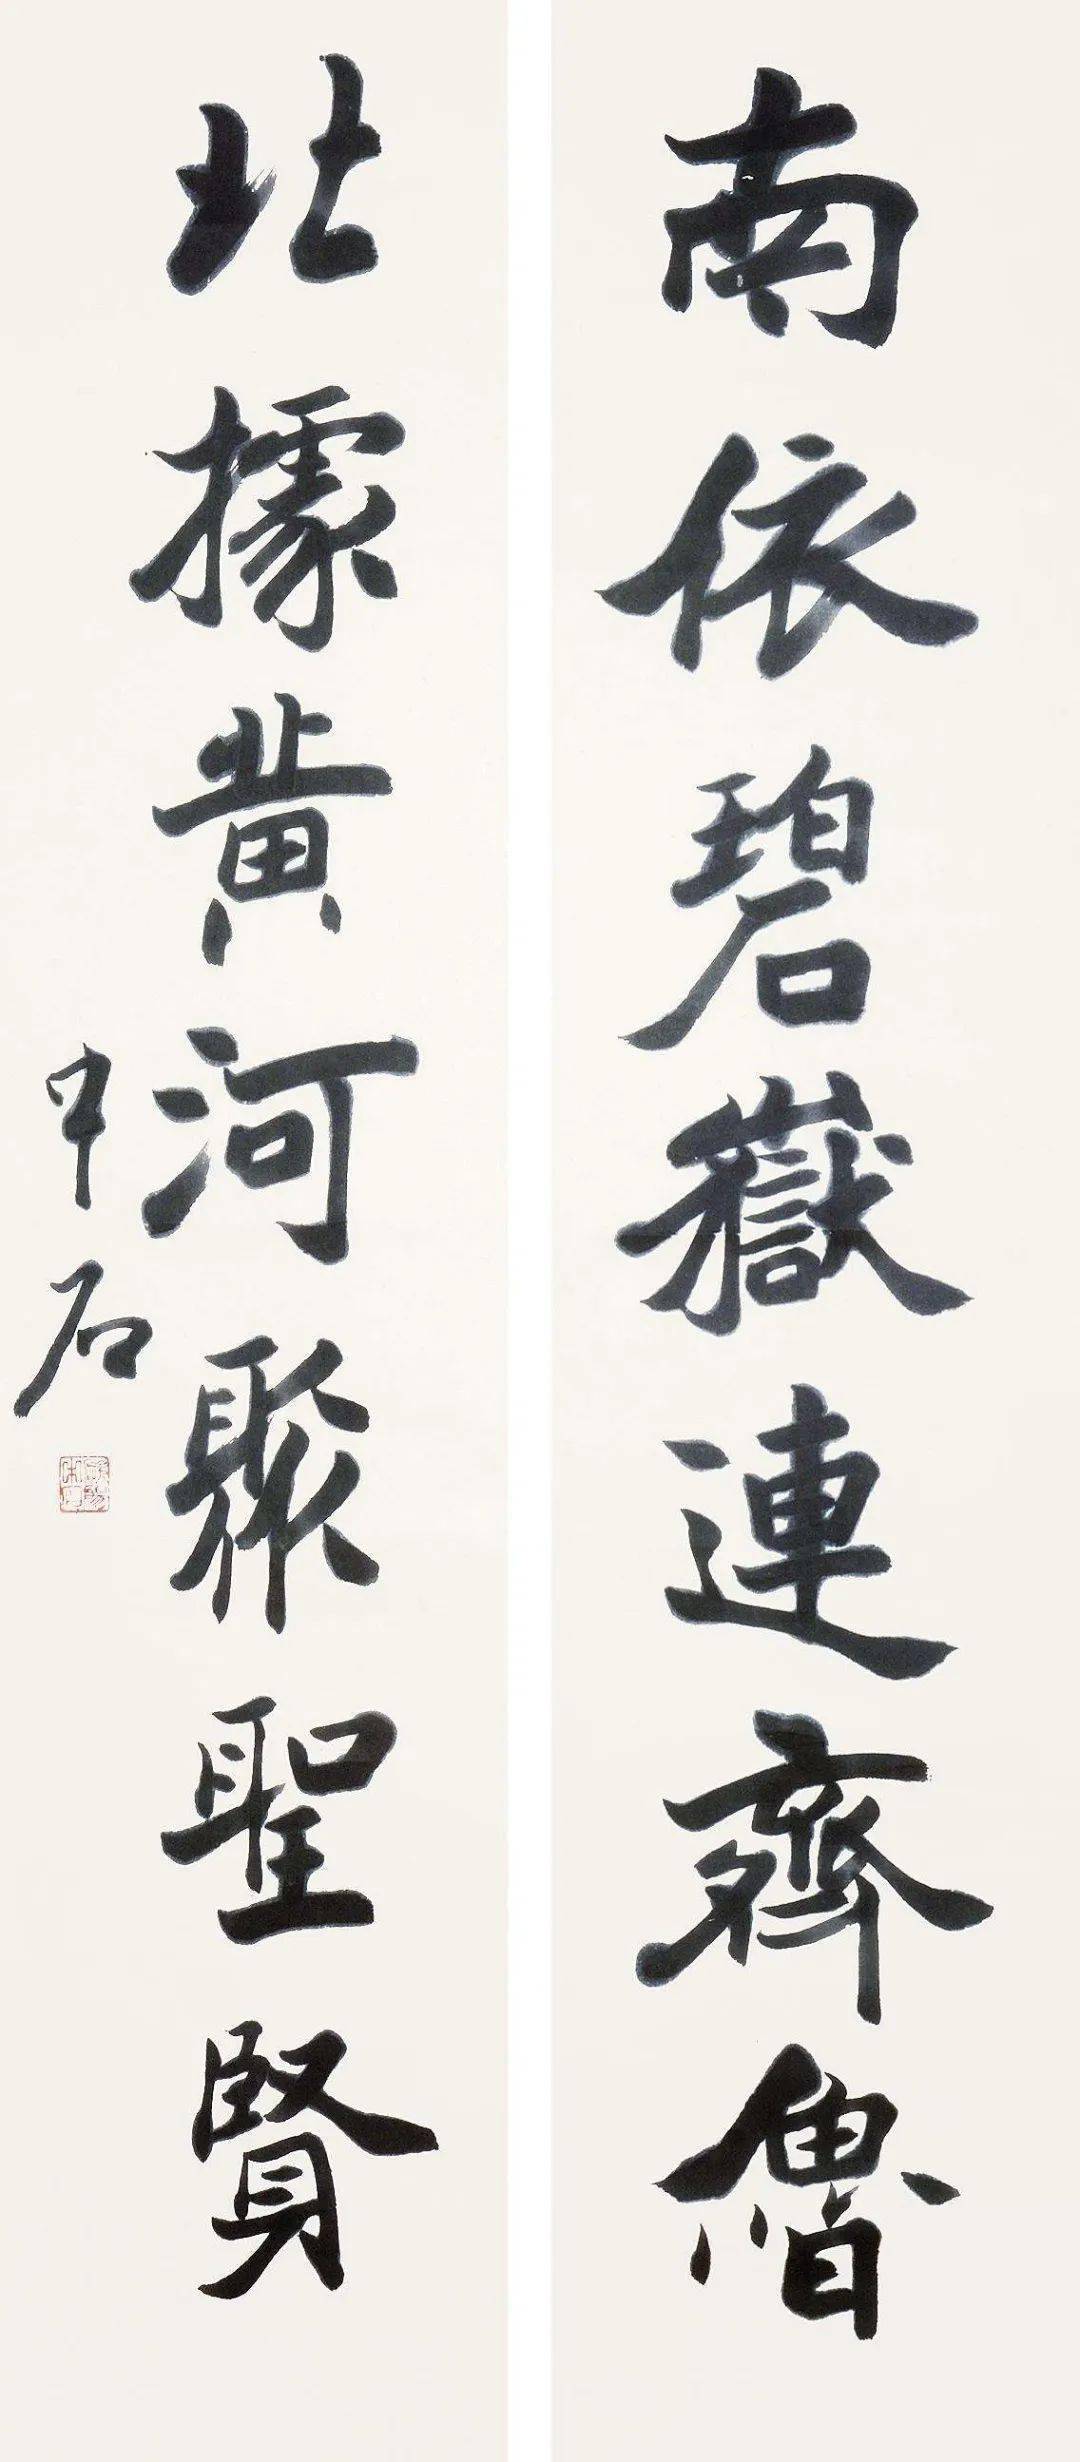 南依碧嶽連齊魯
北據黄河聚聖賢
中石